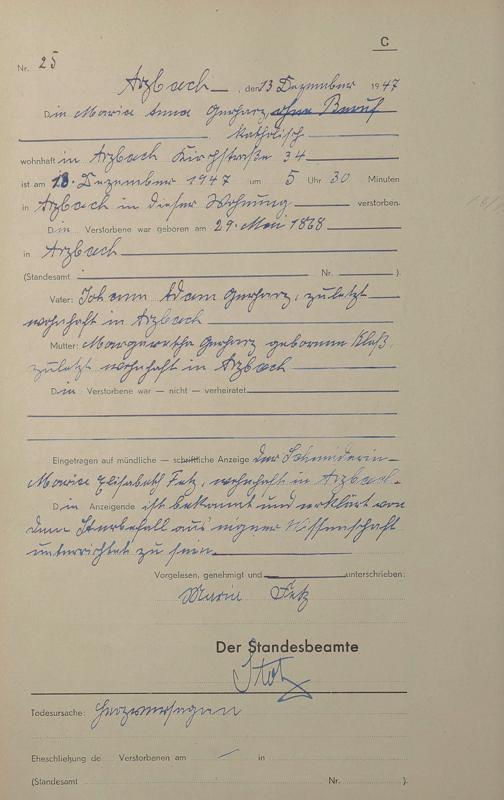 C
Nr. 25
Arzbach, den 13 Dezember 1947
Die Maria Anna Gerharz, ohne Beruf
katholisch
wohnhaft in Arzbach Kirchstraße 34
ist am 13. Dezember 1947 um 5 Uhr 30 Minuten
in Arzbach in dieser Wohnung verstorben.
Die Verstorbene war geboren am 29. Mai 1868
in Arzbach
(Standesamt Nr. ).
Vater: Johann Adam Gerharz, zuletzt
wohnhaft in Arzbach
Mutter: Margaretha Gerharz geborene Klaß,
zuletzt wohnhaft in Arzbach
Die Verstorbene war — nicht — verheiratet
Eingetragen auf mündliche — schriftliche Anzeige der Schneiderin
Maria Elisabeth Fetz, wohnhaft in Arzbach.
Die Anzeigende ist bekannt und erklärt von
dem Sterbefall aus eigner Wissenschaft
unterrichtet zu sein.
Vorgelesen, genehmigt und unterschrieben:
Maria Fetz
Der Standesbeamte
Todesursache: Herzversagen
Eheschließung de Verstorbenen am — in
(Standesamt Nr. ).